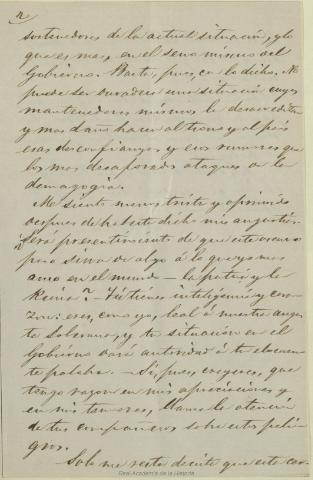 sostenedores de la actual situación, y lo
que es mas, en el seno mismo del
Gobierno. Basta, pues, con lo dicho. No
puede ser duradera una situación cuyos
mantenedores mismos la desacreditan
y mas daño hacen al trono y al país
esas desconfianzas y esos rumores que
los mas desaforados ataques de la
demagogia.
Me siento menos triste y oprimido
despues de haberte dicho mis angustias.
Será presentimiento de que este
para sirva de algo á lo que yo mas
amo en el mundo — la patria y la
Reina? — Tú tienes inteligencia y cora-
zon: eres, como yo, leal á nuestra augus-
ta Soberana, y tu situación en el
Gobierno dará autoridad á tu elocuen-
te palabra. — Si, pues, creyeses, que
tengo razon en mis apreciaciones y
en mis temores, llama la atención
de tus compañeros sobre estos peli-
gros.
Solo me resta decirte que esta
Real Academia de la Historia